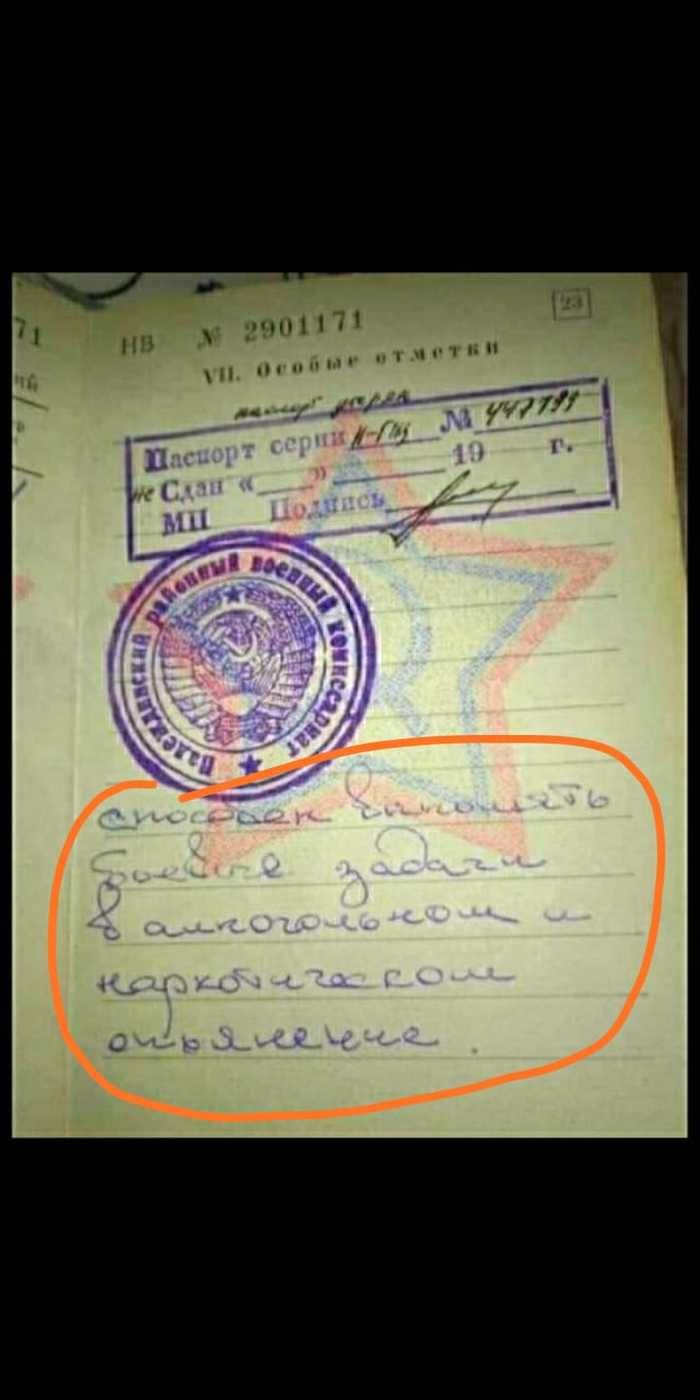 71
23
НВ № 2901171
VII. Особые отметки
паспорт утерян
Паспорт серии № 447799
не Сдан « » 19 г.
МП Подпись
Надеждинский районный военный комиссариат
способен выполнять
боевые задачи
в алкогольном и
наркотическом
опьянение.